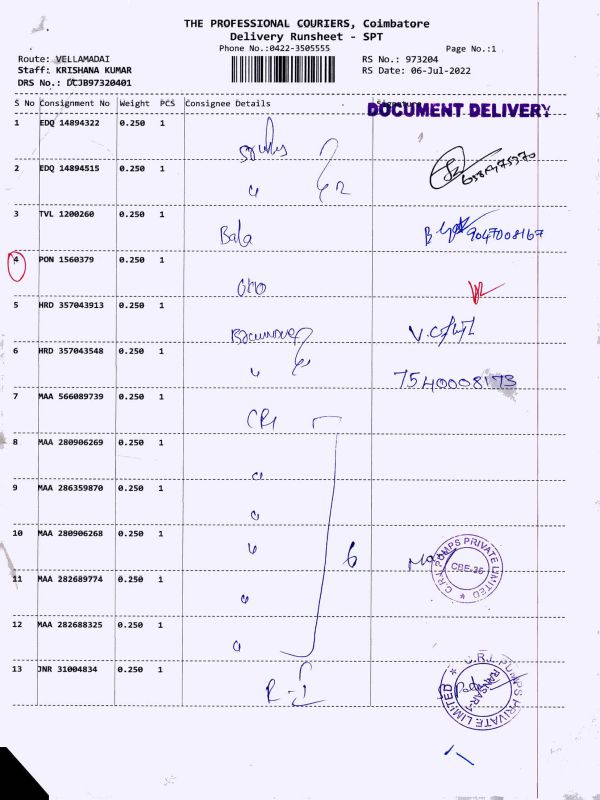 THE PROFESSIONAL COURIERS, Coimbatore
Delivery Runsheet - SPT
Phone No.:0422-3505555 Page No.:1
Route: VELLAMADAI RS No.: 973204
Staff: KRISHANA KUMAR RS Date: 06-Jul-2022
DRS No.: DCJB97320401
S No Consignment No Weight PCS Consignee Details
DOCUMENT DELIVERY
1 EDQ 14894322 0.250 1
2 EDQ 14894515 0.250 1
3 TVL 1200260 0.250 1
Bala 9047008167
4 PON 1560379 0.250 1
5 HRD 357043913 0.250 1
6 HRD 357043548 0.250 1
7540008173
7 MAA 566089739 0.250 1
CRI
8 MAA 280906269 0.250 1
9 MAA 286359870 0.250 1
10 MAA 280906268 0.250 1
6
C.R.I. PUMPS PRIVATE LIMITED
CBE-35
11 MAA 282689774 0.250 1
12 MAA 282688325 0.250 1
13 JNR 31004834 0.250 1
R-1
C.R.I. PUMPS PRIVATE LIMITED